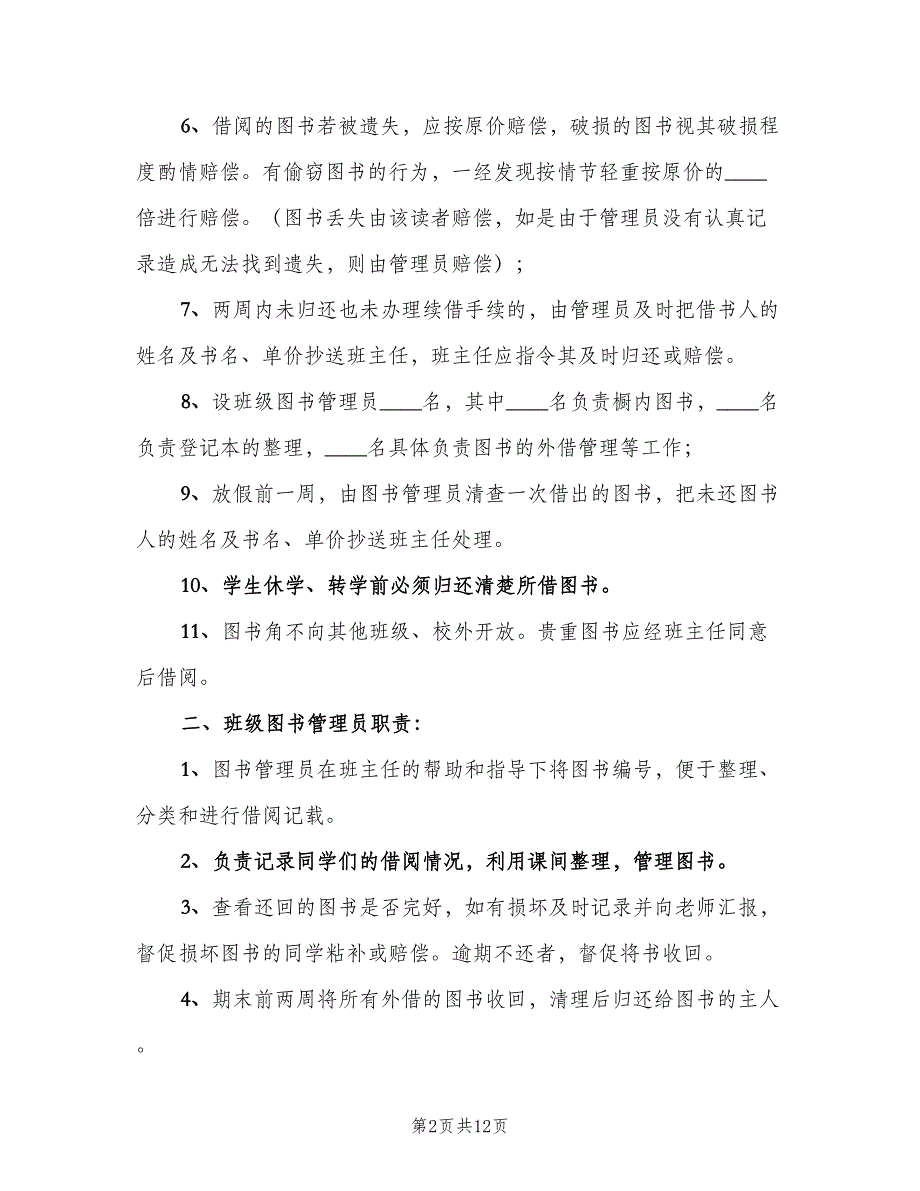 6、借阅的图书若被遗失，应按原价赔偿，破损的图书视其破损程
度酌情赔偿。有偷窃图书的行为，一经发现按情节轻重按原价的____
倍进行赔偿。（图书丢失由该读者赔偿，如是由于管理员没有认真记
录造成无法找到遗失，则由管理员赔偿）；
7、两周内未归还也未办理续借手续的，由管理员及时把借书人的
姓名及书名、单价抄送班主任，班主任应指令其及时归还或赔偿。
8、设班级图书管理员____名，其中____名负责橱内图书，____名
负责登记本的整理，____名具体负责图书的外借管理等工作；
9、放假前一周，由图书管理员清查一次借出的图书，把未还图书
人的姓名及书名、单价抄送班主任处理。
10、学生休学、转学前必须归还清楚所借图书。
11、图书角不向其他班级、校外开放。贵重图书应经班主任同意
后借阅。
二、班级图书管理员职责：
1、图书管理员在班主任的帮助和指导下将图书编号，便于整理、
分类和进行借阅记载。
2、负责记录同学们的借阅情况，利用课间整理，管理图书。
3、查看还回的图书是否完好，如有损坏及时记录并向老师汇报，
督促损坏图书的同学粘补或赔偿。逾期不还者，督促将书收回。
4、期末前两周将所有外借的图书收回，清理后归还给图书的主人
。
第2页共12页